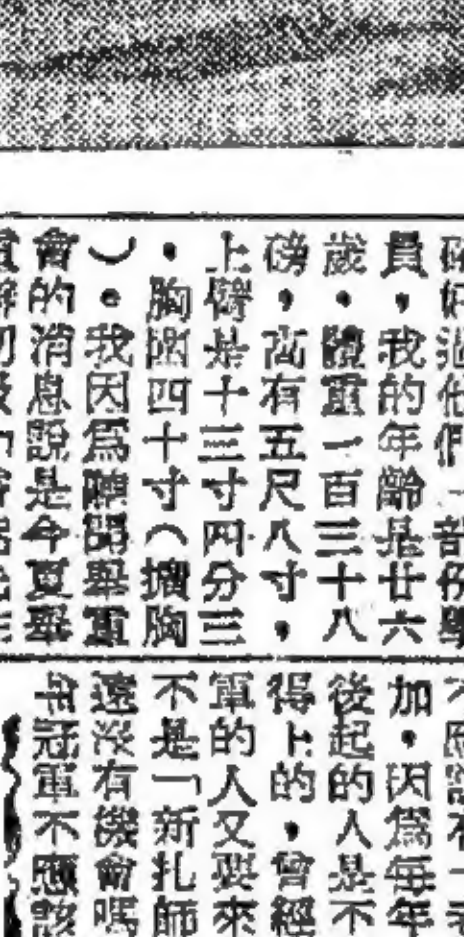 員，我的年齡是廿六
歲，體重一百三十八
磅，高有五尺八寸，
上臂是十三寸四分三
，胸圍四十寸（擴胸
）。我因為聽聞舉重
會的消息說是今夏舉
加，因爲每年
後起的人是不
得上的，曾經
軍的人又要來
不是「新扎師
還沒有機會嗎
冠軍不應該